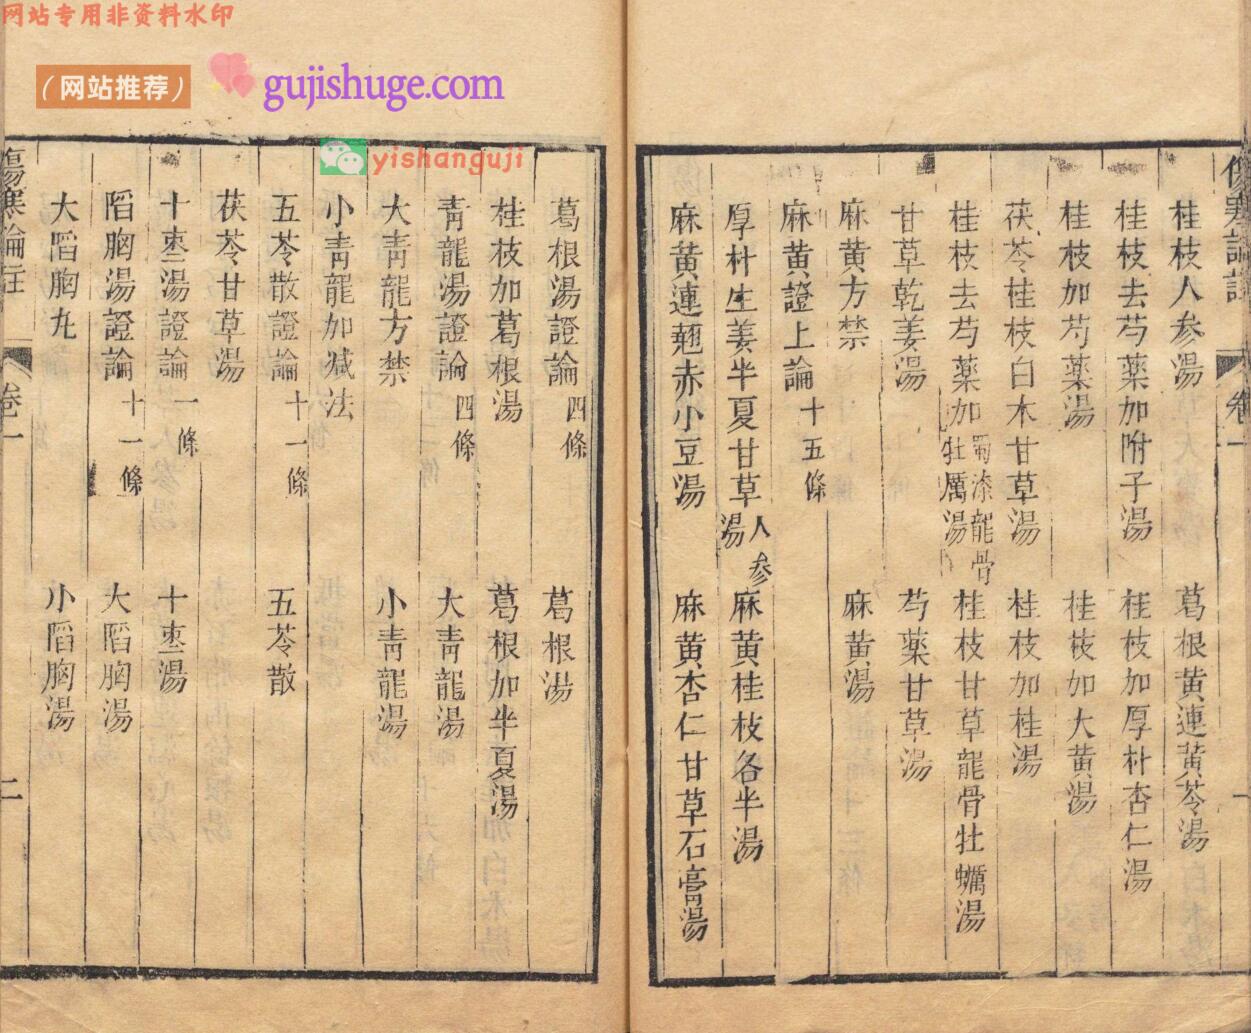 网站专用非资料水印
（网站推荐）
gujishuge.com
yishanguji
傷寒論註
卷一
一
桂枝人参湯
葛根黄連黄芩湯
桂枝去芍薬加附子湯
桂枝加厚朴杏仁湯
桂枝加芍薬湯
桂枝加大黄湯
茯苓桂枝白木甘草湯
桂枝加桂湯
桂枝去芍薬加蜀漆龍骨牡厲湯
桂枝甘草龍骨牡蠣湯
甘草乾姜湯
芍薬甘草湯
麻黄方禁
麻黄湯
麻黄證上論十五條
厚朴生姜半夏甘草人参湯
麻黄桂枝各半湯
麻黄連翹赤小豆湯
麻黄杏仁甘草石膏湯
葛根湯證論四條
葛根湯
桂枝加葛根湯
葛根加半夏湯
靑龍湯證論四條
大靑龍湯
大靑龍方禁
小靑龍湯
小靑龍加减法
五苓散證論十一條
五苓散
茯苓甘草湯
十棗湯證論一條
十棗湯
陷胸湯證論十一條
大陷胸湯
大陷胸丸
小陷胸湯
傷寒論註
卷一
二